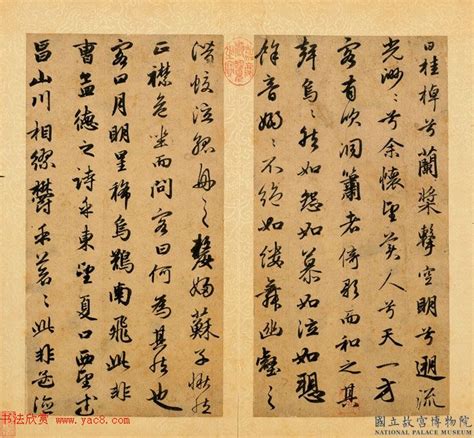 曰桂棹兮蘭槳擊空明兮遡流
光渺〻兮余懷望美人兮天一方
客有吹洞簫者倚歌而和之其
聲烏〻然如怨如慕如泣如愬
餘音嫋〻不絕如縷舞幽壑之
潛蛟泣孤舟之嫠婦蘇子愀然
正襟危坐而問客曰何為其然也
客曰月明星稀烏鵲南飛此非
曹孟德之詩乎東望夏口西望武
昌山川相繆鬱乎蒼〻此非孟德
书法欣赏 www.yac8.com
國立故宮博物院
NATIONAL PALACE MUSEUM